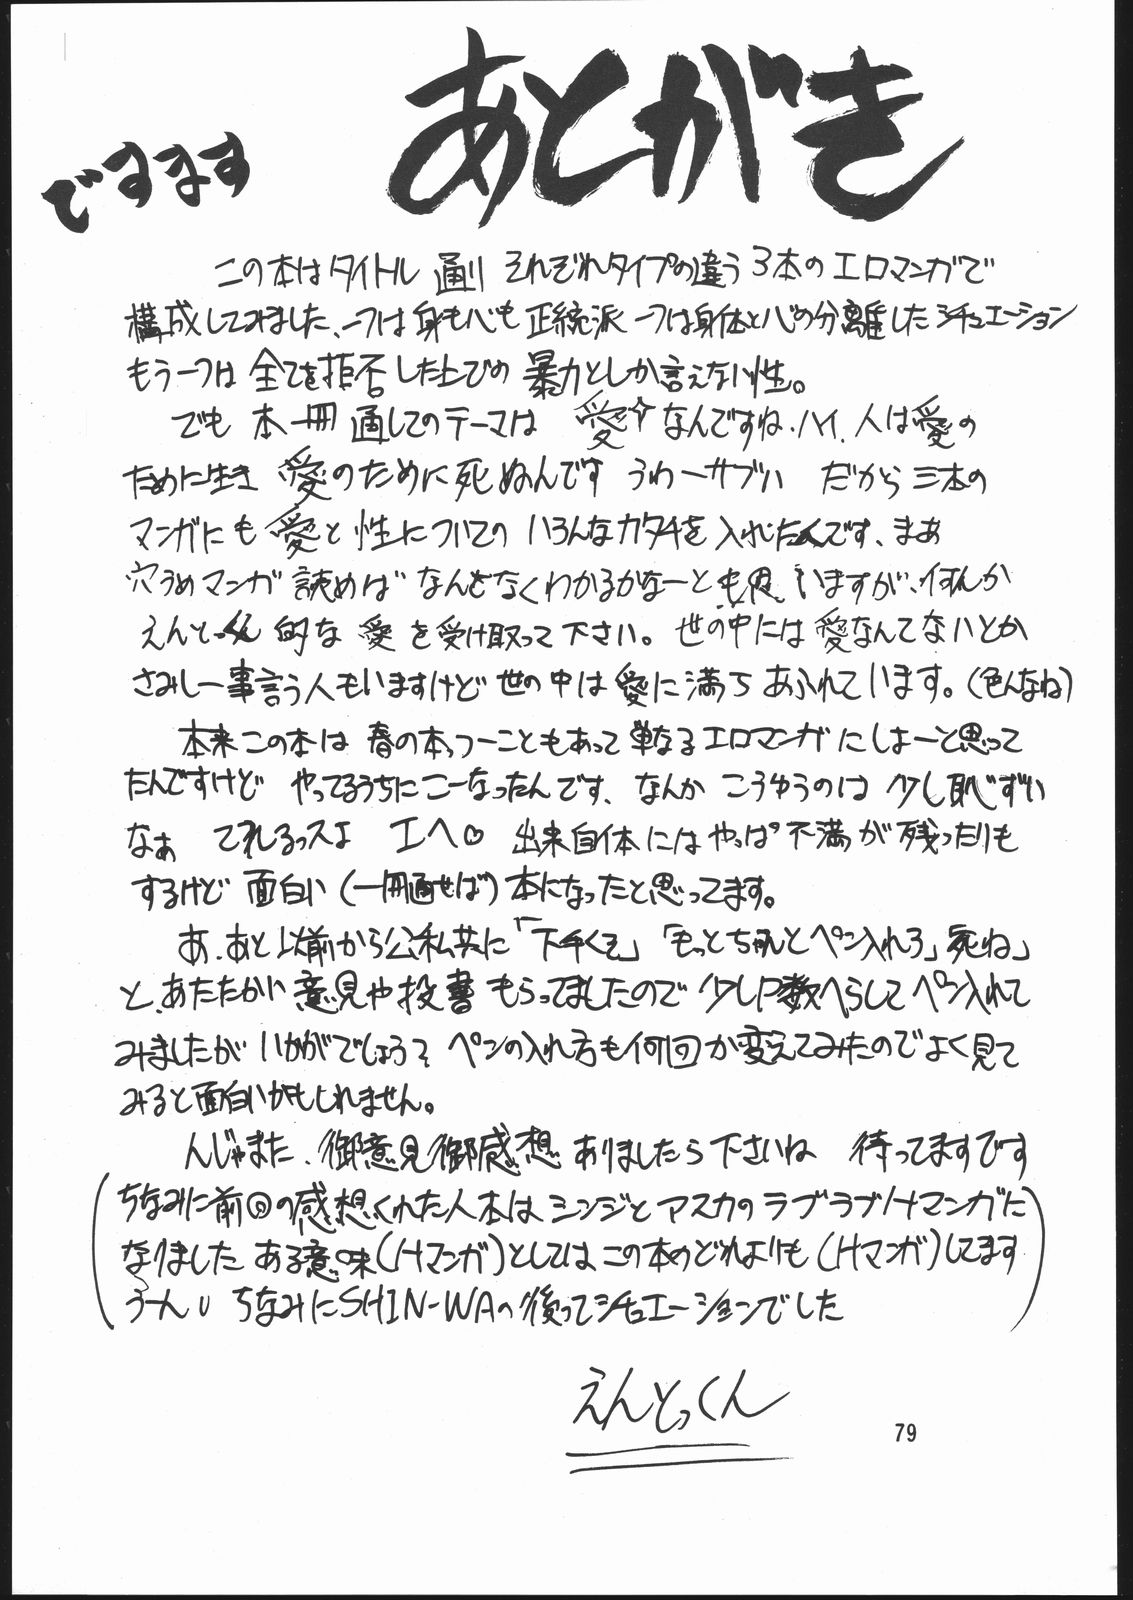 あとがき
でするます
この本はタイトル通り それぞれタイプの違う3本のエロマンガで
構成してみました、一つは身も心も正統派 一つは身体と心の分離したシチュエーション
もう一つは 全てを拒否した上での 暴力としか言えない性。
でも 本一冊 通してのテーマは 愛☆なんですね、ハイ、人は愛の
ために生き 愛のために死ぬんです うわーサブい だから三本の
マンガにも愛と性についての いろんなカタチを入れたんです、まあ
穴うめマンガ 読めば なんとなくわかるかなーとも思いますが、何んか
えんとっくん的な 愛を受け取って下さい。世の中には愛なんてないとか
さみしー事言う人もいますけど世の中は愛に満ちあふれています。(色んなね)
本来この本は 春の本っつーこともあって単なるエロマンガにしよーと思って
たんですけど やってるうちにこーなったんです、なんか こうゆうのは 少し恥ずい
なぁ てれるっスよ エヘ♡ 出来自体にはやっぱ不満が残ったりも
するけど 面白い(一冊通せば)本になったと思ってます。
あ、あと以前から公私共に「下手くそ」「もっとちゃんとペン入れろ」死ね」
と、あたたかい意見や投書もらってましたので少しP数へらしてペン入れて
みましたが いかがでしょう? ペンの入れ方も何回か変えてみたのでよく見て
みると面白いかもしれません。
んじゃまた、御意見御感想ありましたら下さいね 待ってますです
(ちなみに前回の感想くれた人本はシンジとアスカのラブラブHマンガに
なりました ある意味(Hマンガ)としてはこの本のどれよりも(Hマンガ)してます
うーん ちなみにSHIN-WAの後ってシチュエーションでした)
えんとっくん
79